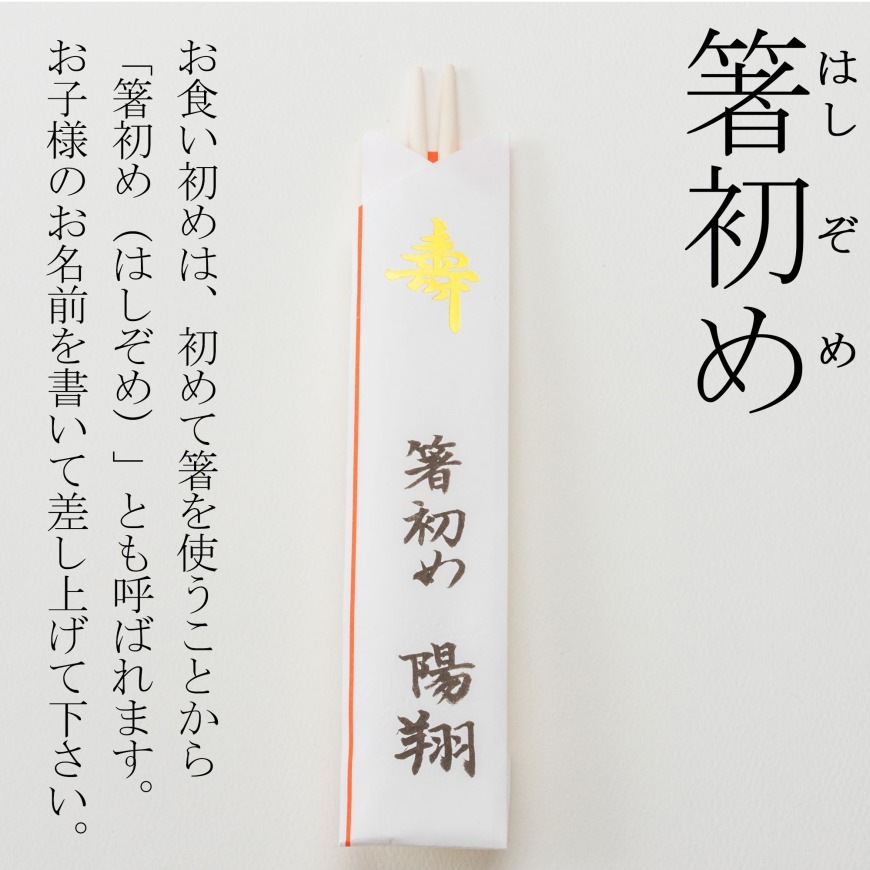 箸初め
はしぞめ
寿
箸初め 陽翔
お食い初めは、初めて箸を使うことから
「箸初め（はしぞめ）」とも呼ばれます。
お子様のお名前を書いて差し上げて下さい。